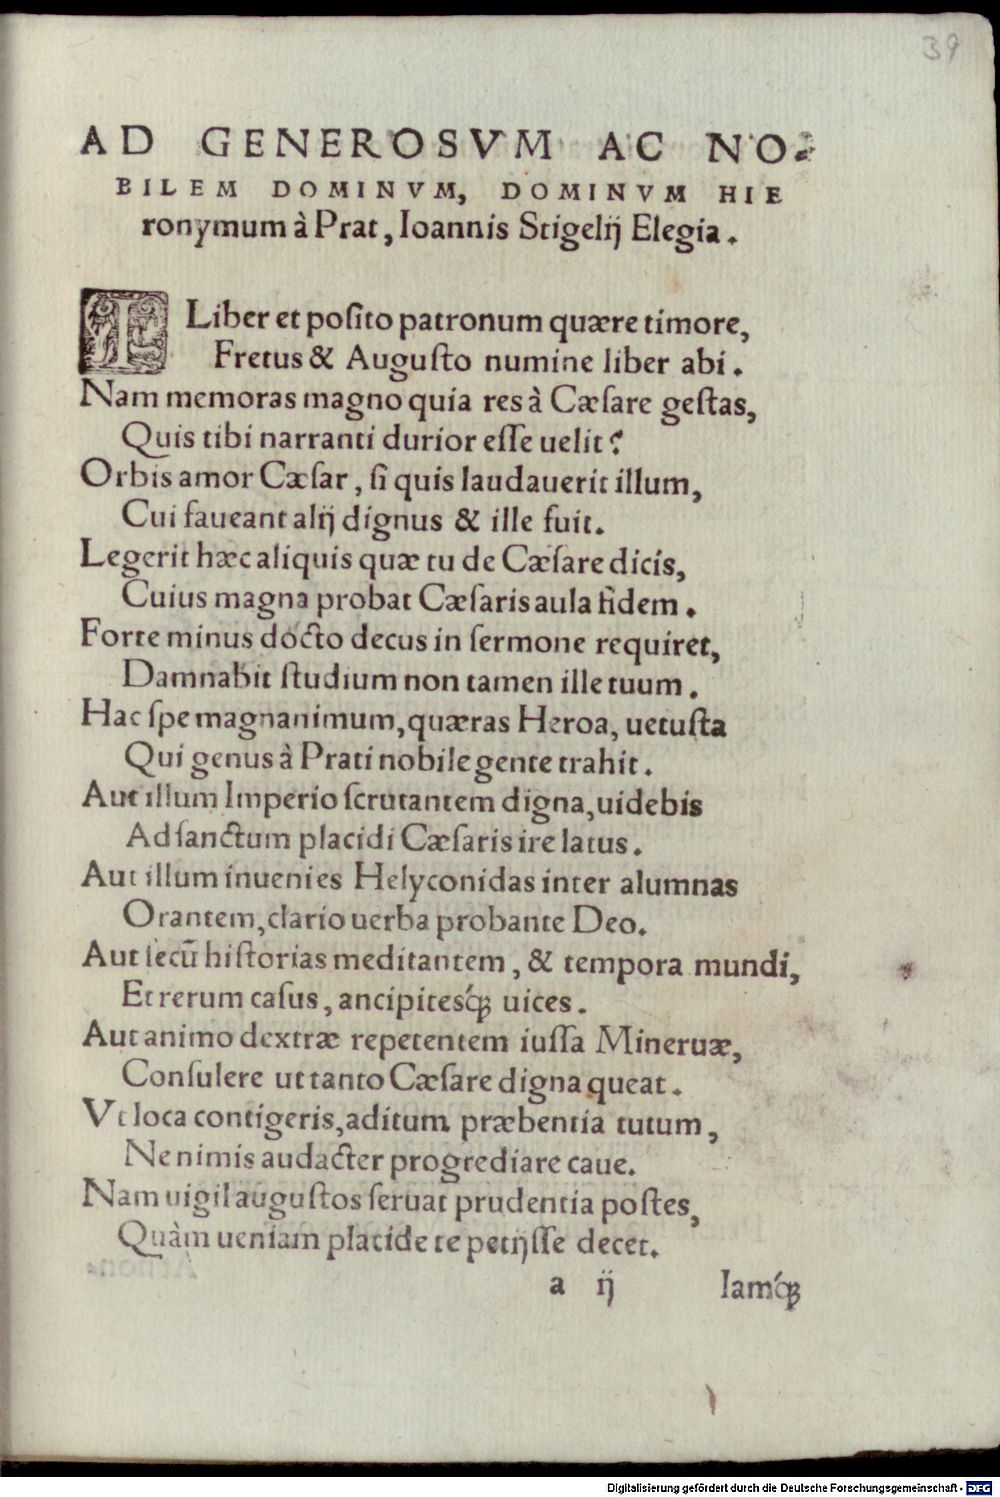 39
AD GENEROSVM AC NO-
BILEM DOMINVM, DOMINVM HIE
ronymum à Prat, Ioannis Stigelij Elegia.
I Liber et posito patronum quære timore,
Fretus & Augusto numine liber abi.
Nam memoras magno quia res à Cæsare gestas,
Quis tibi narranti durior esse uelit?
Orbis amor Cæsar, si quis laudauerit illum,
Cui faueant alij dignus & ille fuit.
Legerit hæc aliquis quæ tu de Cæsare dicis,
Cuius magna probat Cæsaris aula fidem.
Forte minus docto decus in sermone requiret,
Damnabit studium non tamen ille tuum.
Hac spe magnanimum, quæras Heroa, uetusta
Qui genus à Prati nobile gente trahit.
Aut illum Imperio scrutantem digna, uidebis
Ad sanctum placidi Cæsaris ire latus.
Aut illum inuenies Helyconidas inter alumnas
Orantem, clario uerba probante Deo.
Aut secũ historias meditantem, & tempora mundi,
Et rerum casus, ancipitesq́ꝫ uices.
Aut animo dextræ repetentem iussa Mineruæ,
Consulere ut tanto Cæsare digna queat.
Vt loca contigeris, aditum præbentia tutum,
Ne nimis audacter progrediare caue.
Nam uigil augustos seruat prudentia postes,
Quàm ueniam placide te petijsse decet.
a ij Iamq́ꝫ
Digitalisierung gefördert durch die Deutsche Forschungsgemeinschaft - DFG